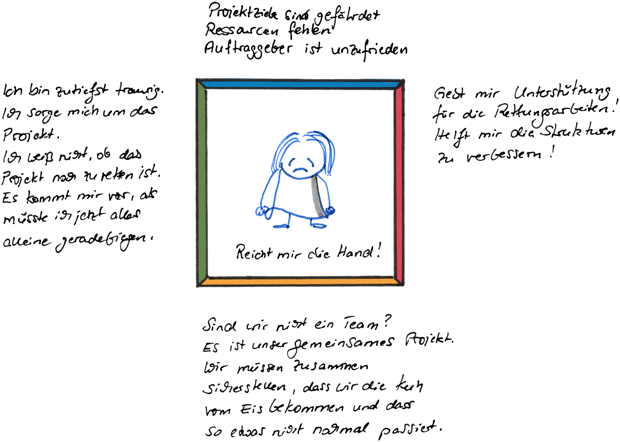 Projektziele sind gefährdet
Ressourcen fehlen
Auftraggeber ist unzufrieden
Ich bin zutiefst traurig.
Ich sorge mich um das
Projekt.
Ich weiß nicht, ob das
Projekt noch zu retten ist.
Es kommt mir vor, als
müsste ich jetzt alles
alleine geradebiegen.
Reicht mir die Hand!
Gebt mir Unterstützung
für die Rettungsarbeiten!
Helft mir die Strukturen
zu verbessern!
Sind wir nicht ein Team?
Es ist unser gemeinsames Projekt.
Wir müssen zusammen
sicherstellen, dass wir die Kuh
vom Eis bekommen und dass
so etwas nicht nochmal passiert.